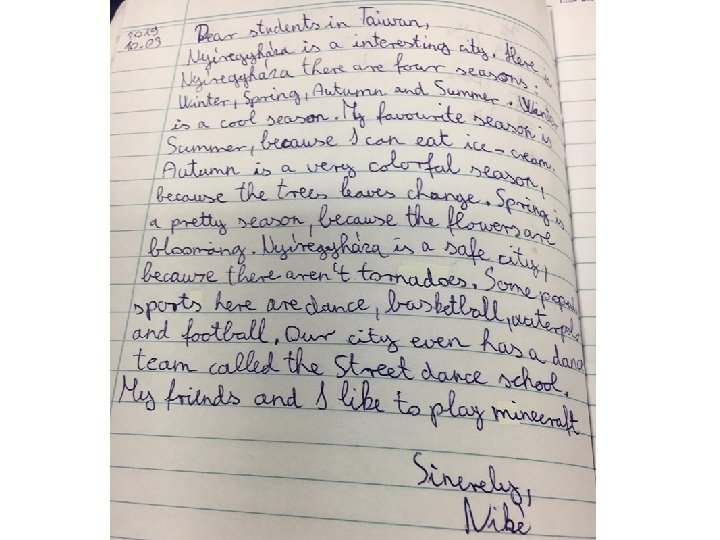 2019
10.03
Dear students in Taiwan,
Nyíregyháza is a interesting city. Here in
Nyíregyháza there are four seasons:
Winter, Spring, Autumn and Summer. Winter
is a cool season. My favourite season is
Summer, because I can eat ice-cream.
Autumn is a very colorful season,
because the trees leaves change. Spring is
a pretty season, because the flowers are
blooming. Nyíregyháza is a safe city,
because there aren't tornadoes. Some popu
sports here are dance, basketball, waterpolo
and football. Our city even has a danc
team called the Street dance school.
My friends and I like to play minecraft
Sinerely,
Niké